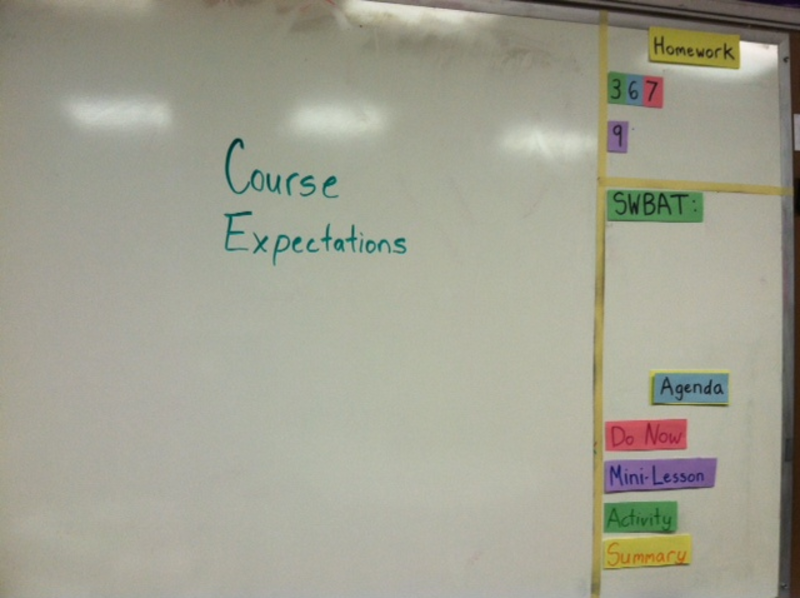 Course
Expectations
Homework
3 6 7
9
SWBAT:
Agenda
Do Now
Mini-Lesson
Activity
Summary